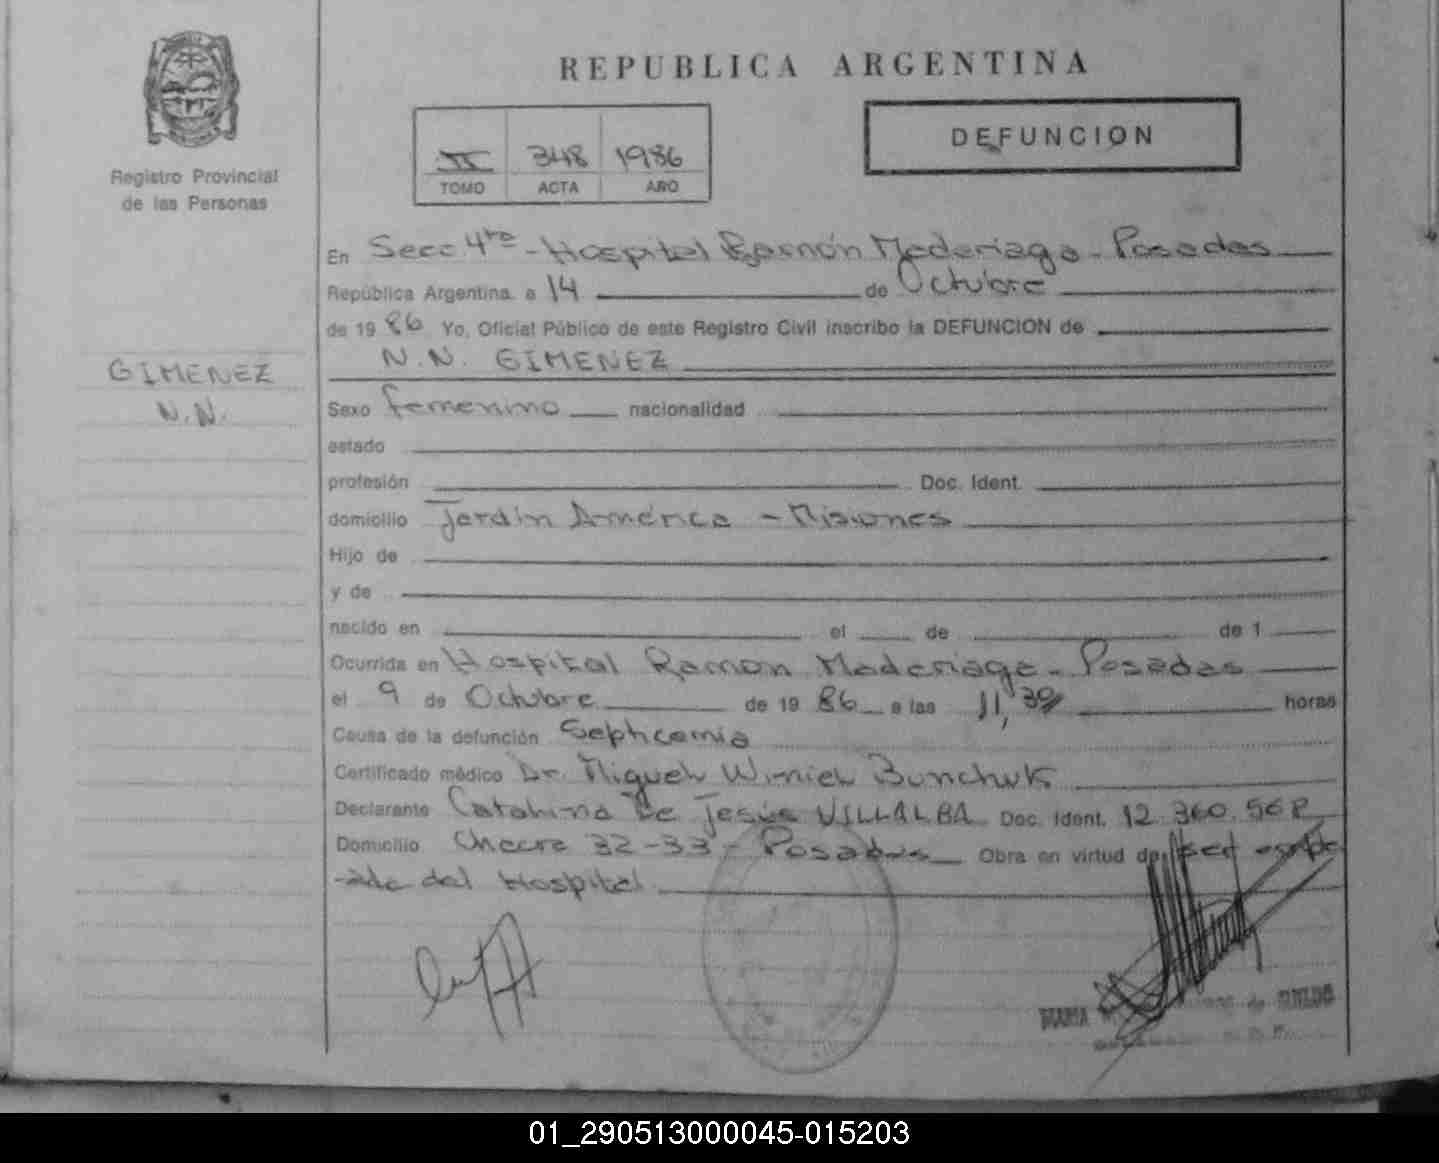 REPUBLICA ARGENTINA
II 348 1986
TOMO ACTA AÑO
DEFUNCION
Registro Provincial
de las Personas
GIMENEZ
N.N.
En Secc 4ta - Hospital Ramón Madariaga - Posadas
República Argentina, a 14 de Octubre
de 1986 Yo, Oficial Público de este Registro Civil inscribo la DEFUNCION de
N.N. GIMENEZ
Sexo femenino nacionalidad
estado
profesión Doc. Ident.
domicilio Jardín América - Misiones
Hijo de
y de
nacido en el de de 1
Ocurrida en Hospital Ramon Madariaga - Posadas
el 9 de Octubre de 1986 a las 11,30 horas
Causa de la defunción Septicemia
Certificado médico Dr. Miguel Bunchuk
Declarante Catalina De Jesús VILLALBA Doc. Ident. 12.360.568
Domicilio 32-33 - Posadas Obra en virtud de ser emplea
-da del Hospital
MARIA de
01_290513000045-015203